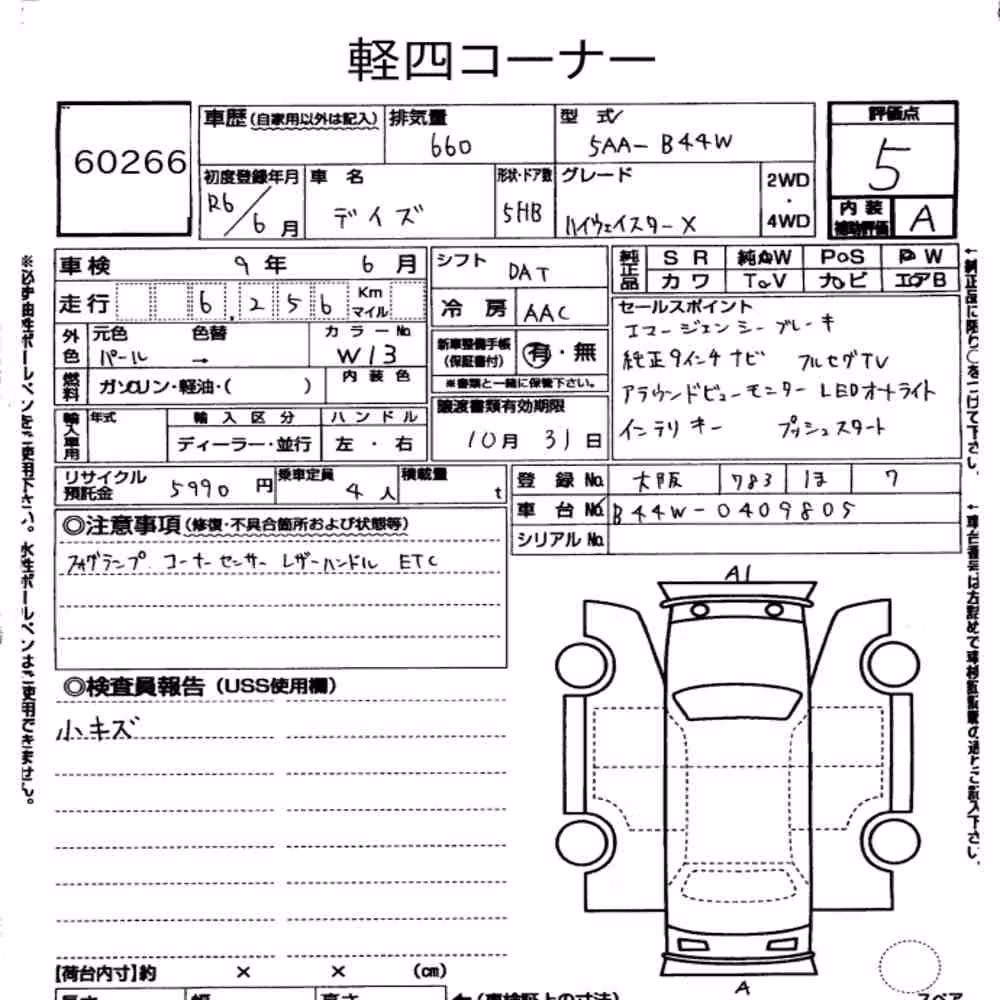 軽四コーナー
60266
車歴 (自家用以外は記入) 排気量 660 型式 5AA-B44W
評価点 5
初度登録年月 R6/6月 車名 デイズ 形状・ドア数 5HB グレード ハイウェイスターX 2WD・4WD
内装補助評価 A
車検 9年 6月 シフト DAT
純正品 SR 純AW PS PW
カワ TV ナビ エアB
走行 6.256 Km マイル 冷房 AAC
セールスポイント
エマージェンシーブレーキ
純正9インチナビ フルセグTV
アラウンドビューモニター LEDオートライト
インテリキー プッシュスタート
外色 元色 パール 色替 → カラーNo. W13
新車整備手帳(保証書付) 有・無
※書類と一緒に保管下さい。
燃料 ガソリン・軽油・( ) 内装色
輸入車用 年式 輸入区分 ハンドル
ディーラー・並行 左・右
譲渡書類有効期限
10月 31日
リサイクル預託金 5990円 乗車定員 4人 積載量 t
登録No. 大阪 783 ほ 7
車台No. B44W-0409805
シリアルNo.
◎注意事項(修復・不具合箇所および状態等)
フォグランプ コーナーセンサー レザーハンドル ETC
◎検査員報告(USS使用欄)
小キズ
A1
A
【荷台内寸】約 × × (cm)
長さ 幅 高さ ←(車検証上の寸法)
スペア
※必ず油性ボールペンをご使用下さい。水性ボールペンはご使用できません。
←純正品に限り○をつけて下さい。
←車台番号は左詰めで車検証記載の通りご記入下さい。